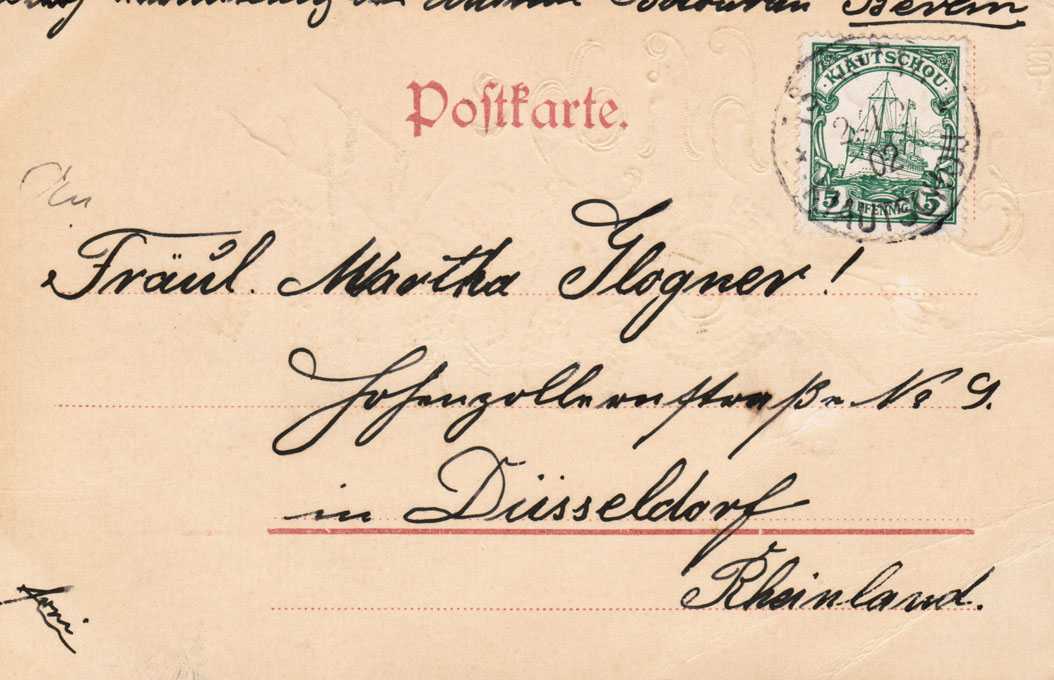 Berlin
Postkarte.
KIAUTSCHOU
02
5 PFENNIG 5
Fräul. Martha Glogner!
Hohenzollernstraße No 9.
in Düsseldorf
Rheinland.